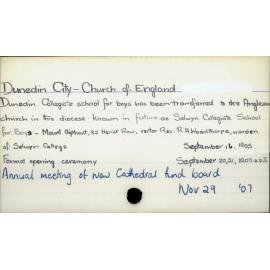 Dunedin City - Church of England
Dunedin Collegiate school for boys has been transferred to the Anglican
church in this diocese known in future as Selwyn Collegiate School
for Boys - Mount Row, rector Rev. R.A. Woodthorpe, warden
of Selwyn College September 16, 1905
Formal opening ceremony September 20,21, 1905
Annual meeting of new Cathedral fund board
Nov 29 '07